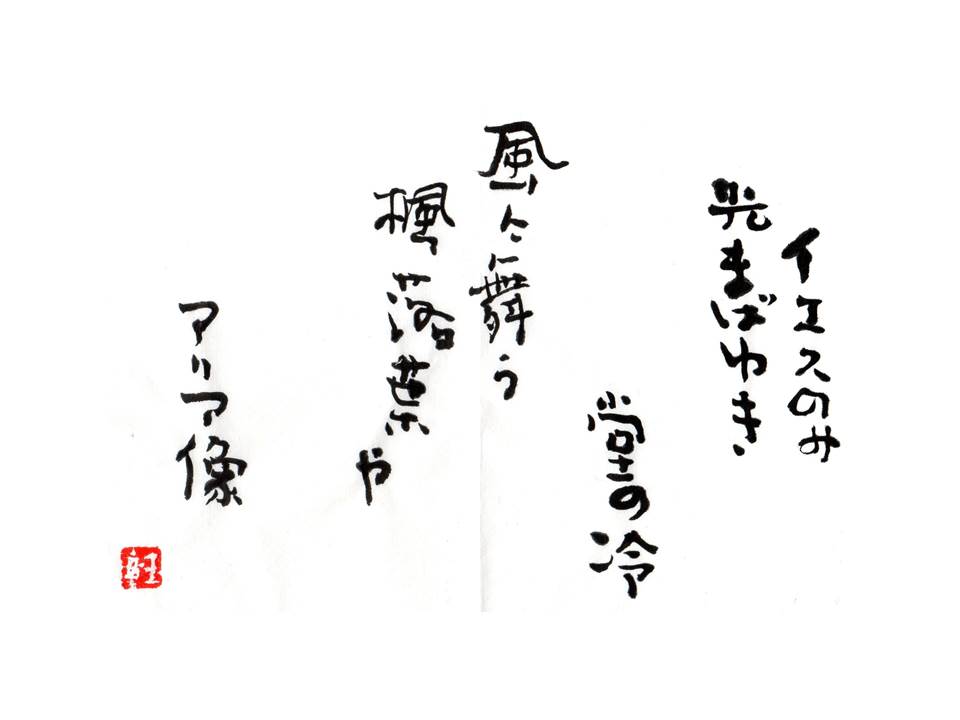 イエスのみ
光まばゆき
堂の冷
風に舞う
楓落葉や
マリア像